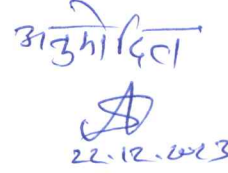 अनुमोदित
22.12.2023